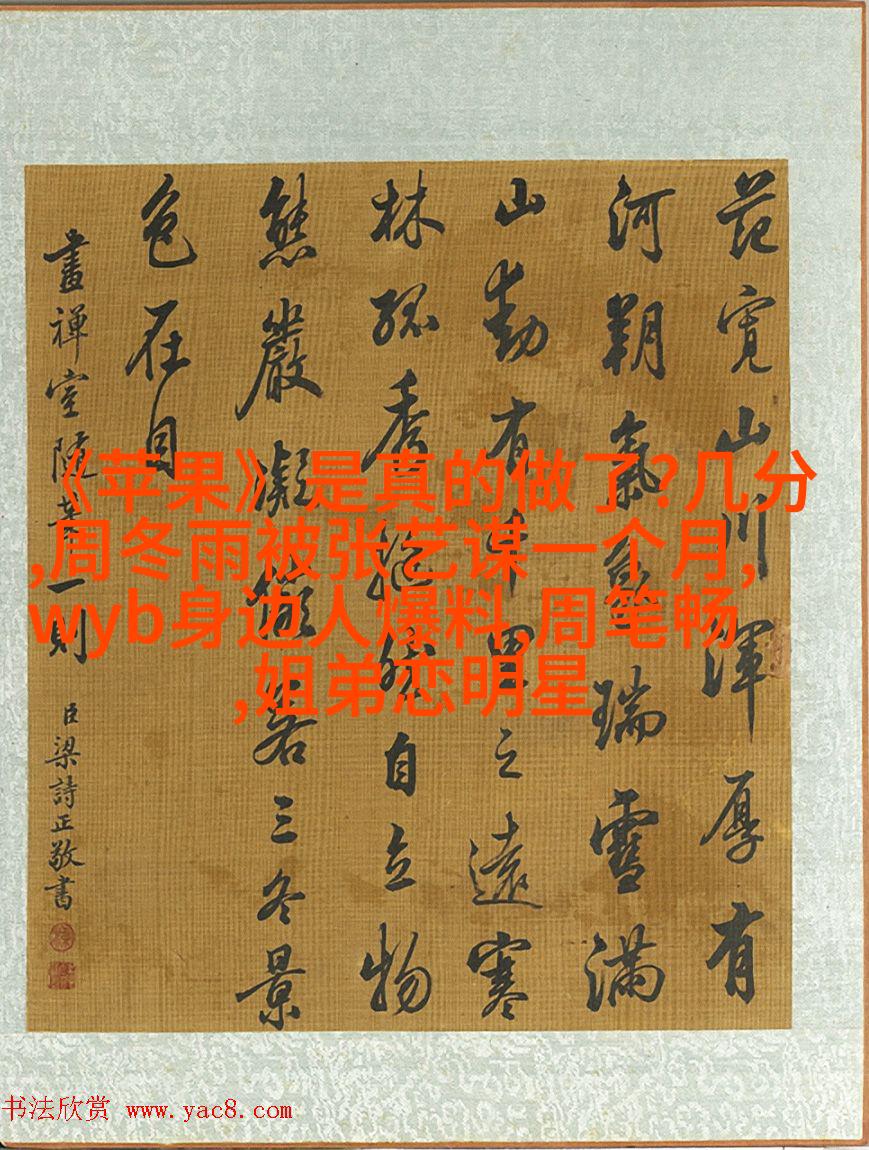 范寬山川渾厚有
河朔氣象瑞雪滿
山動有千里之遠寒
林孤秀挺然自立物
態嚴凝儼若三冬景
色在目
畫禪室隨筆一則 臣梁詩正敬書
《苹果》是真的做了?几分
,周冬雨被张艺谋一个月,
wyb身边人爆料,周笔畅
,姐弟恋明星
书法欣赏 www.yac8.com